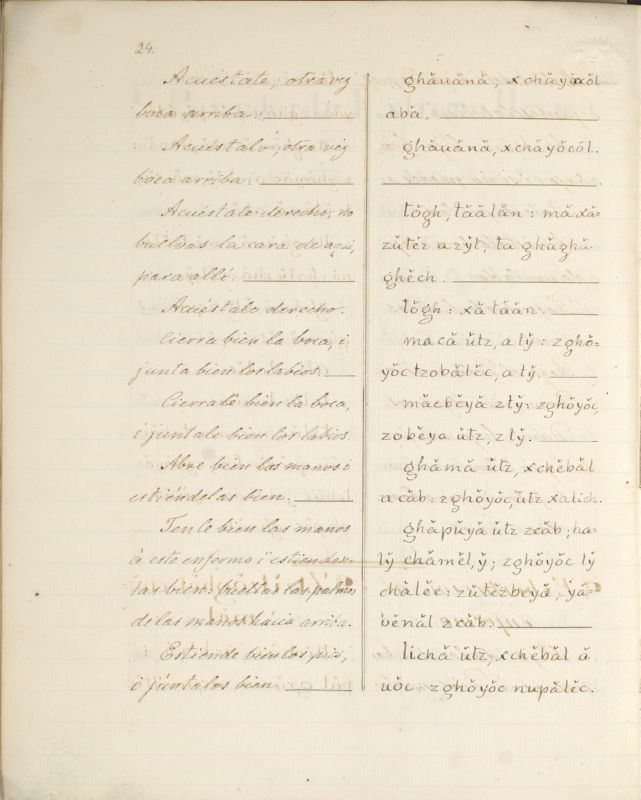 24.
Acuéstate, otra vez
boca arriba.
Acuéstalo, otra vez
boca arriba.
Acuéstate derecho; no
buelvas la cara de aqui,
para allí.
Acuéstalo derecho.
Cierra bien la boca, i
junta bien los labios.
Cierrale bien la boca,
i juntale bien los labios.
Abre bien las manos i
estiéndelas bien.
Tenle bien las manos
á este enfermo i estiendese-
las bien: vueltas las palmas
de las manos hácia arriba.
Estiende bien los pies,
i júntalos bien.
ghăuănă, xchăyăxŏl
abă.
ghăuănă, xchăyŏcŏl.
tŏgh, tăălăn: mă xă-
zŭtĕz azy̆t, ta ghŭghŭ
ghĕch.
tŏgh: xă tăăn.
macă ŭtz, a ty̆: zghŏ-
yŏc tzobălĕc, a ty̆.
măcbĕyă z ty̆: zghŏyŏc,
zobĕya ŭtz, z ty̆.
ghămă ŭtz, xchĕbăl
a căb: zghŏyŏc, ŭtz xalich.
ghăpŭyă ŭtz zcăb; ha-
ly̆ chămĕl, y̆; zghŏyŏc ly̆
chălĕe: zŭtĕzbeyă, yă-
bĕnăl zcăb.
lichă ŭtz, xchĕbăl ă
uŏc: zghŏyŏc nupălĕc.